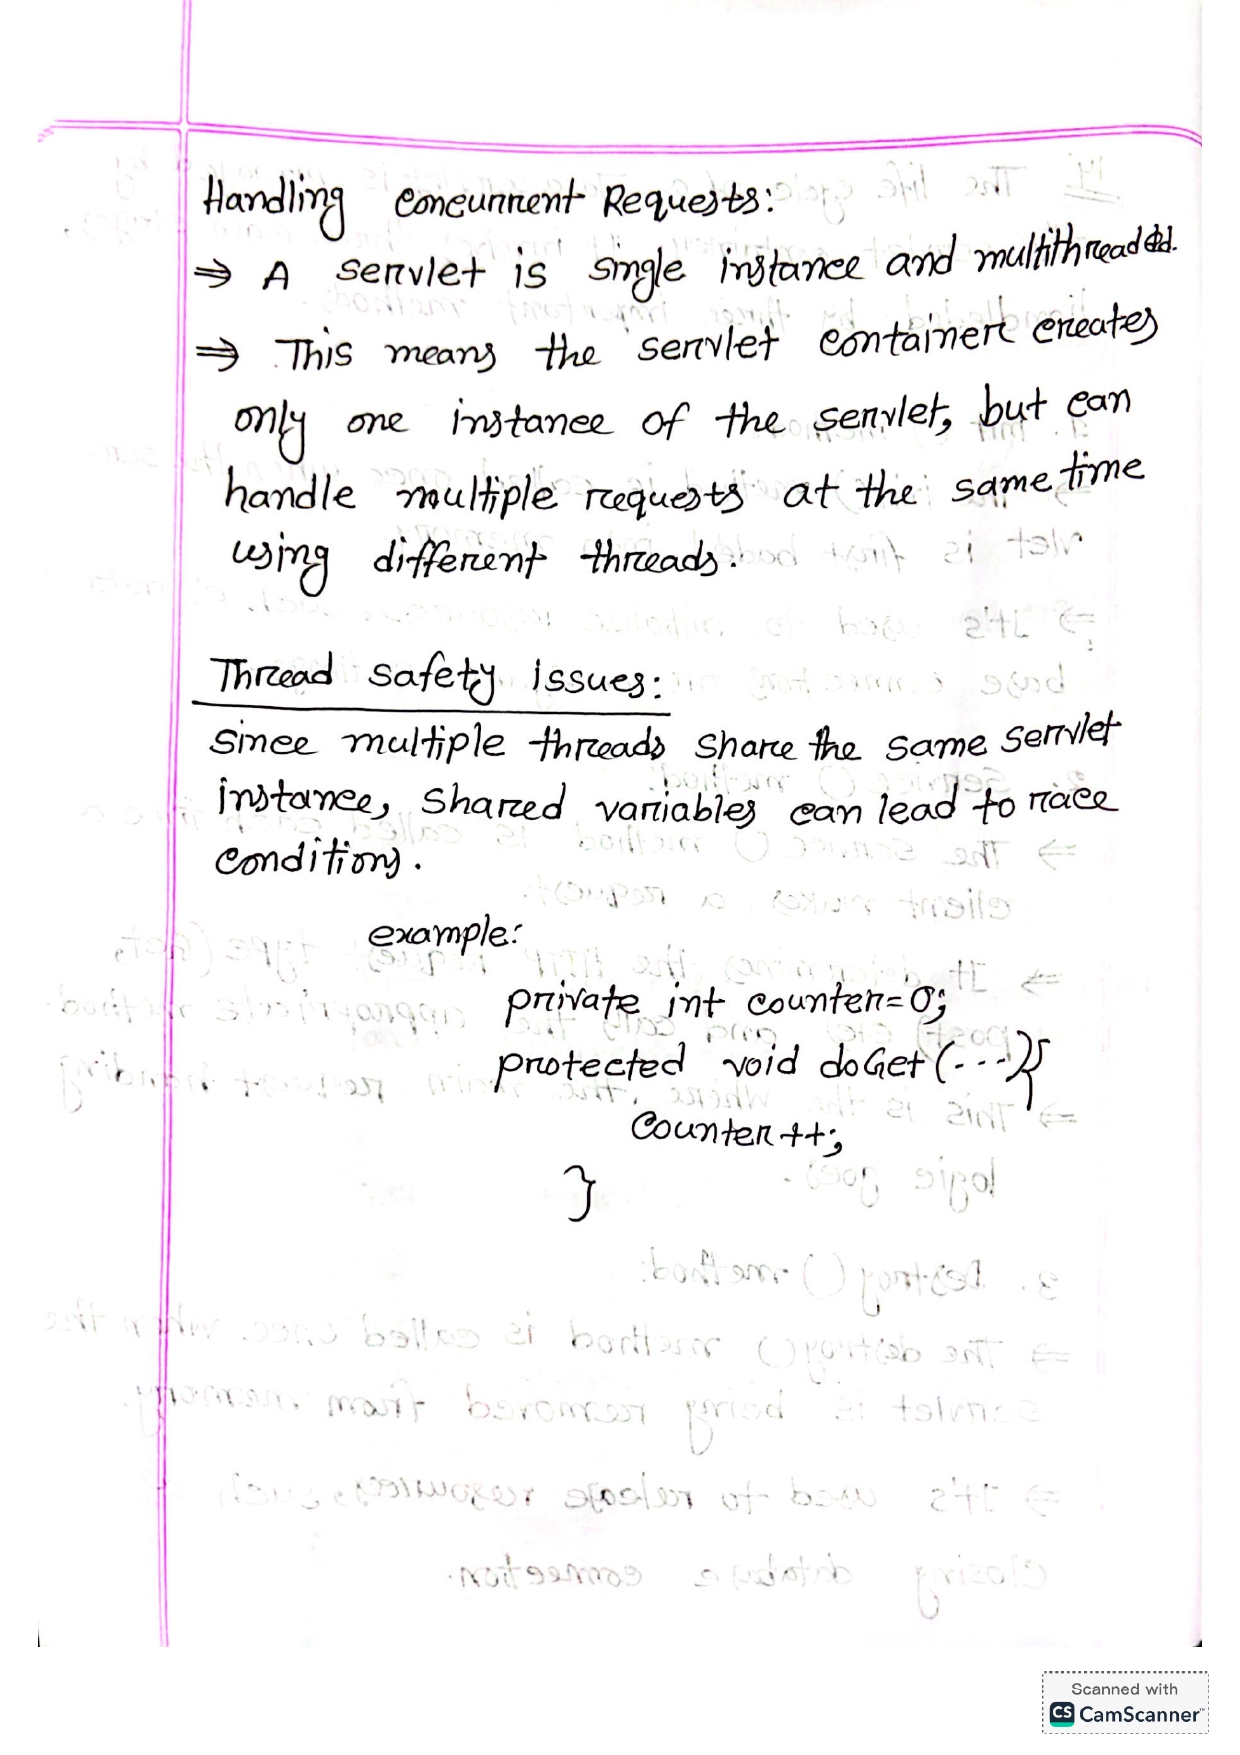 Handling Concurrent Requests:
⇒ A servlet is single instance and multithreaded.
⇒ This means the servlet container creates
only one instance of the servlet, but can
handle multiple requests at the same time
using different threads.
Thread safety issues:
since multiple threads share the same servlet
instance, shared variables can lead to race
conditions.
example:
private int counter=0;
protected void doGet(---){
counter++;
}
Scanned with
CS CamScanner